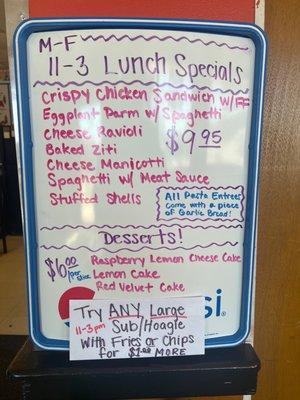 M-F
11-3 Lunch Specials
Crispy Chicken Sandwich w/FF
Eggplant Parm w/ Spaghetti
Cheese Ravioli
$9.95
Baked Ziti
Cheese Manicotti
Spaghetti w/ Meat Sauce
Stuffed Shells
All Pasta Entrees
come with a piece
of Garlic Bread!
Desserts!
$6.00 /per slice
Raspberry Lemon Cheese Cake
Lemon Cake
Red Velvet Cake
Try ANY Large
11-3pm Sub/Hoagie
With Fries or Chips
for $1.00 MORE
si